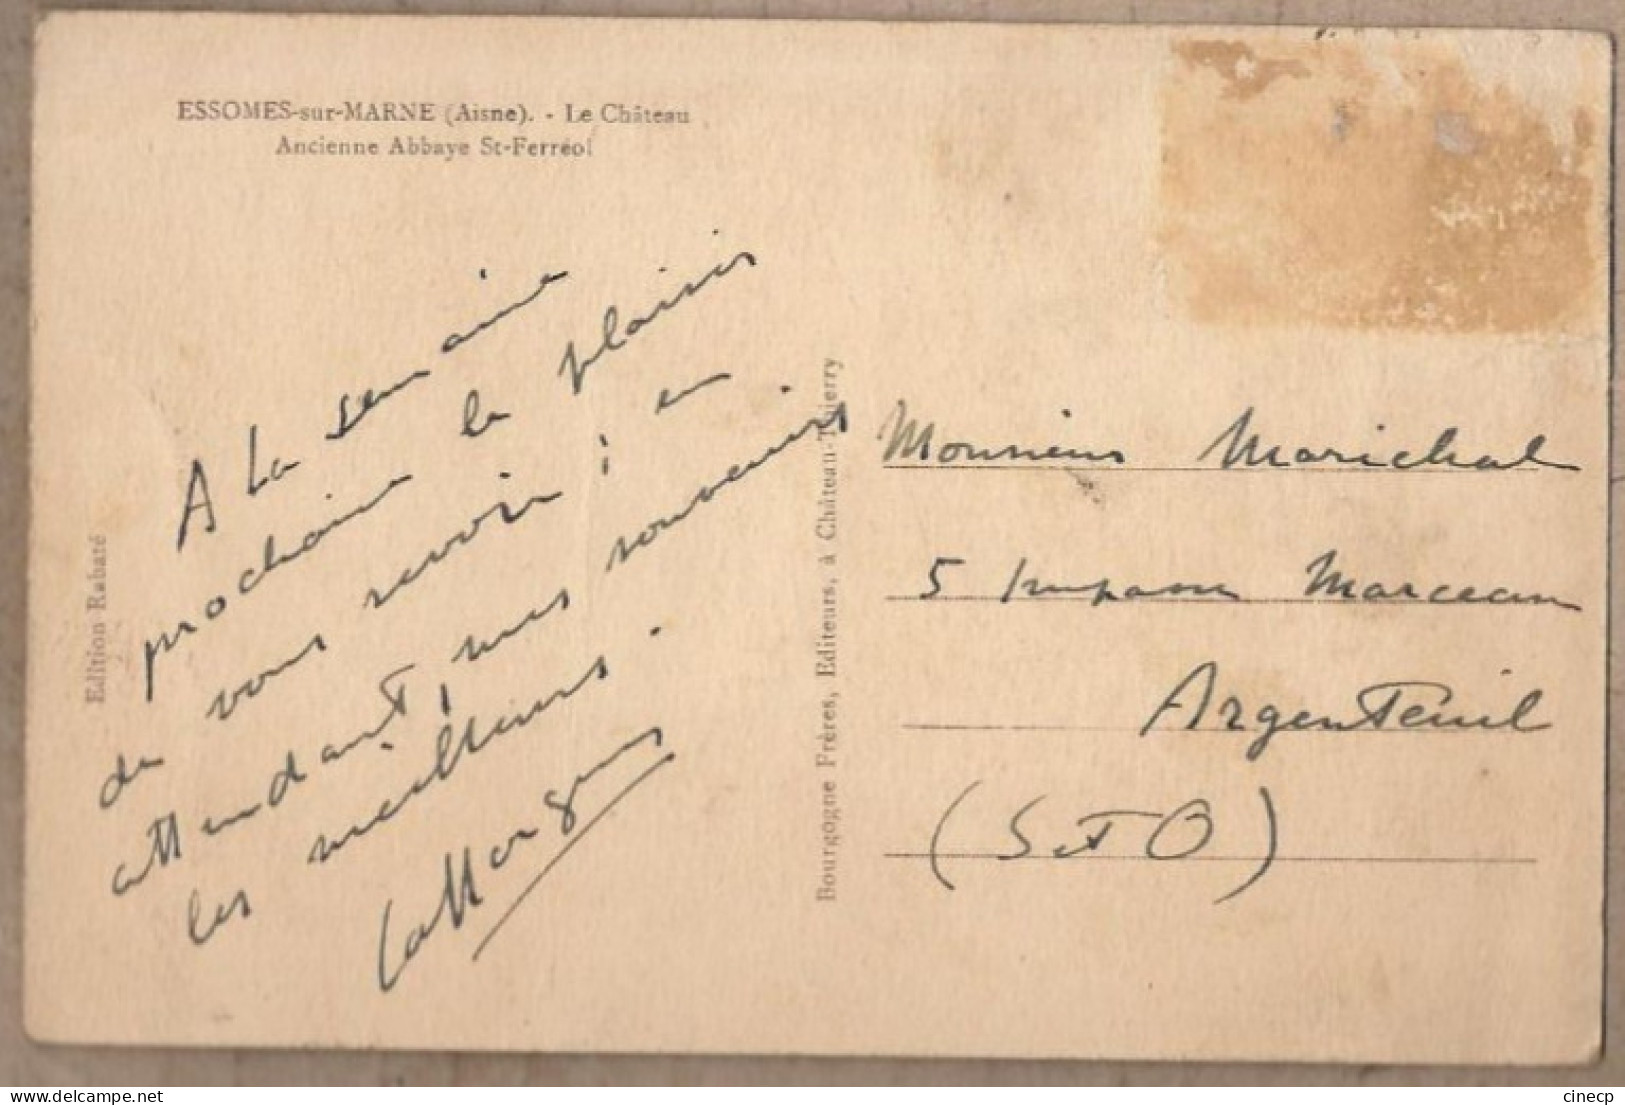 ESSOMES-sur-MARNE (Aisne). - Le Château
Ancienne Abbaye St-Ferréol
A La semaine
prochaine le plaisir
de vous revoir ; en
attendant, mes souvenirs
les meilleurs.
Edition Rabaté
Bourgogne Frères, Editeurs, à Château-Thierry
Monsieur Marichal
5 Impasse Marceau
Argenteuil
(S et O)
delcampe.net
cinecp